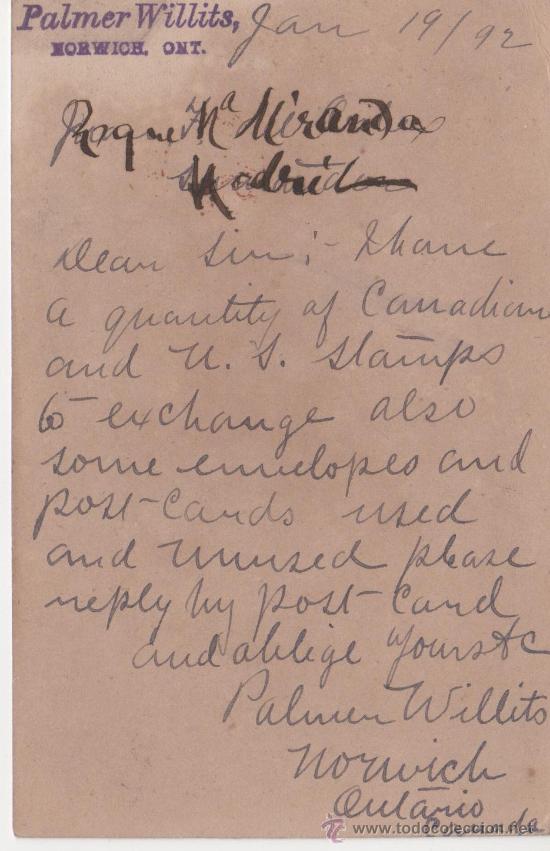 Palmer Willits,
NORWICH, ONT.
Jan 19/92
Roque Mª Miranda
Madrid
Dear Sir;- I have
a quantity of Canadian
and U.S. Stamps
to exchange also
some envelopes and
post-cards used
and unused please
reply by post-card
and oblige yours &c
Palmer Willits
Norwich
Ontario
Canada
www.todocoleccion.net